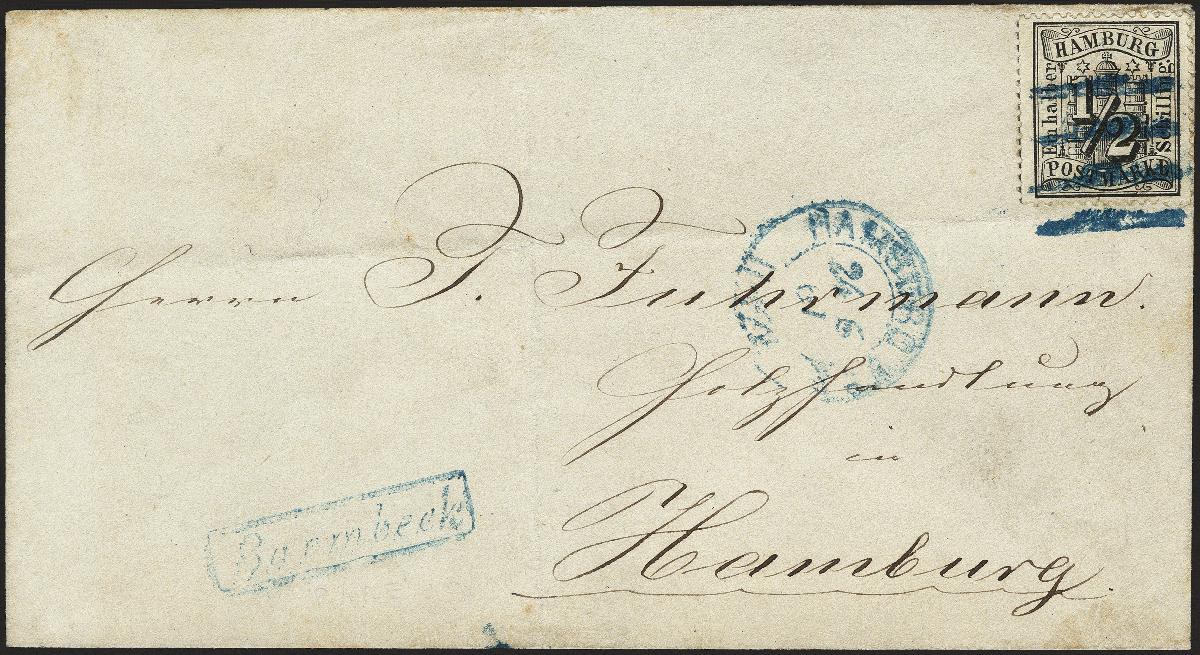 HAMBURG
Ein halber
1/2
Schilling
POSTMARKE
HAMBURG
Herrn J. Fuhrmann.
Holzhandlung
in
Hamburg.
Barmbeck